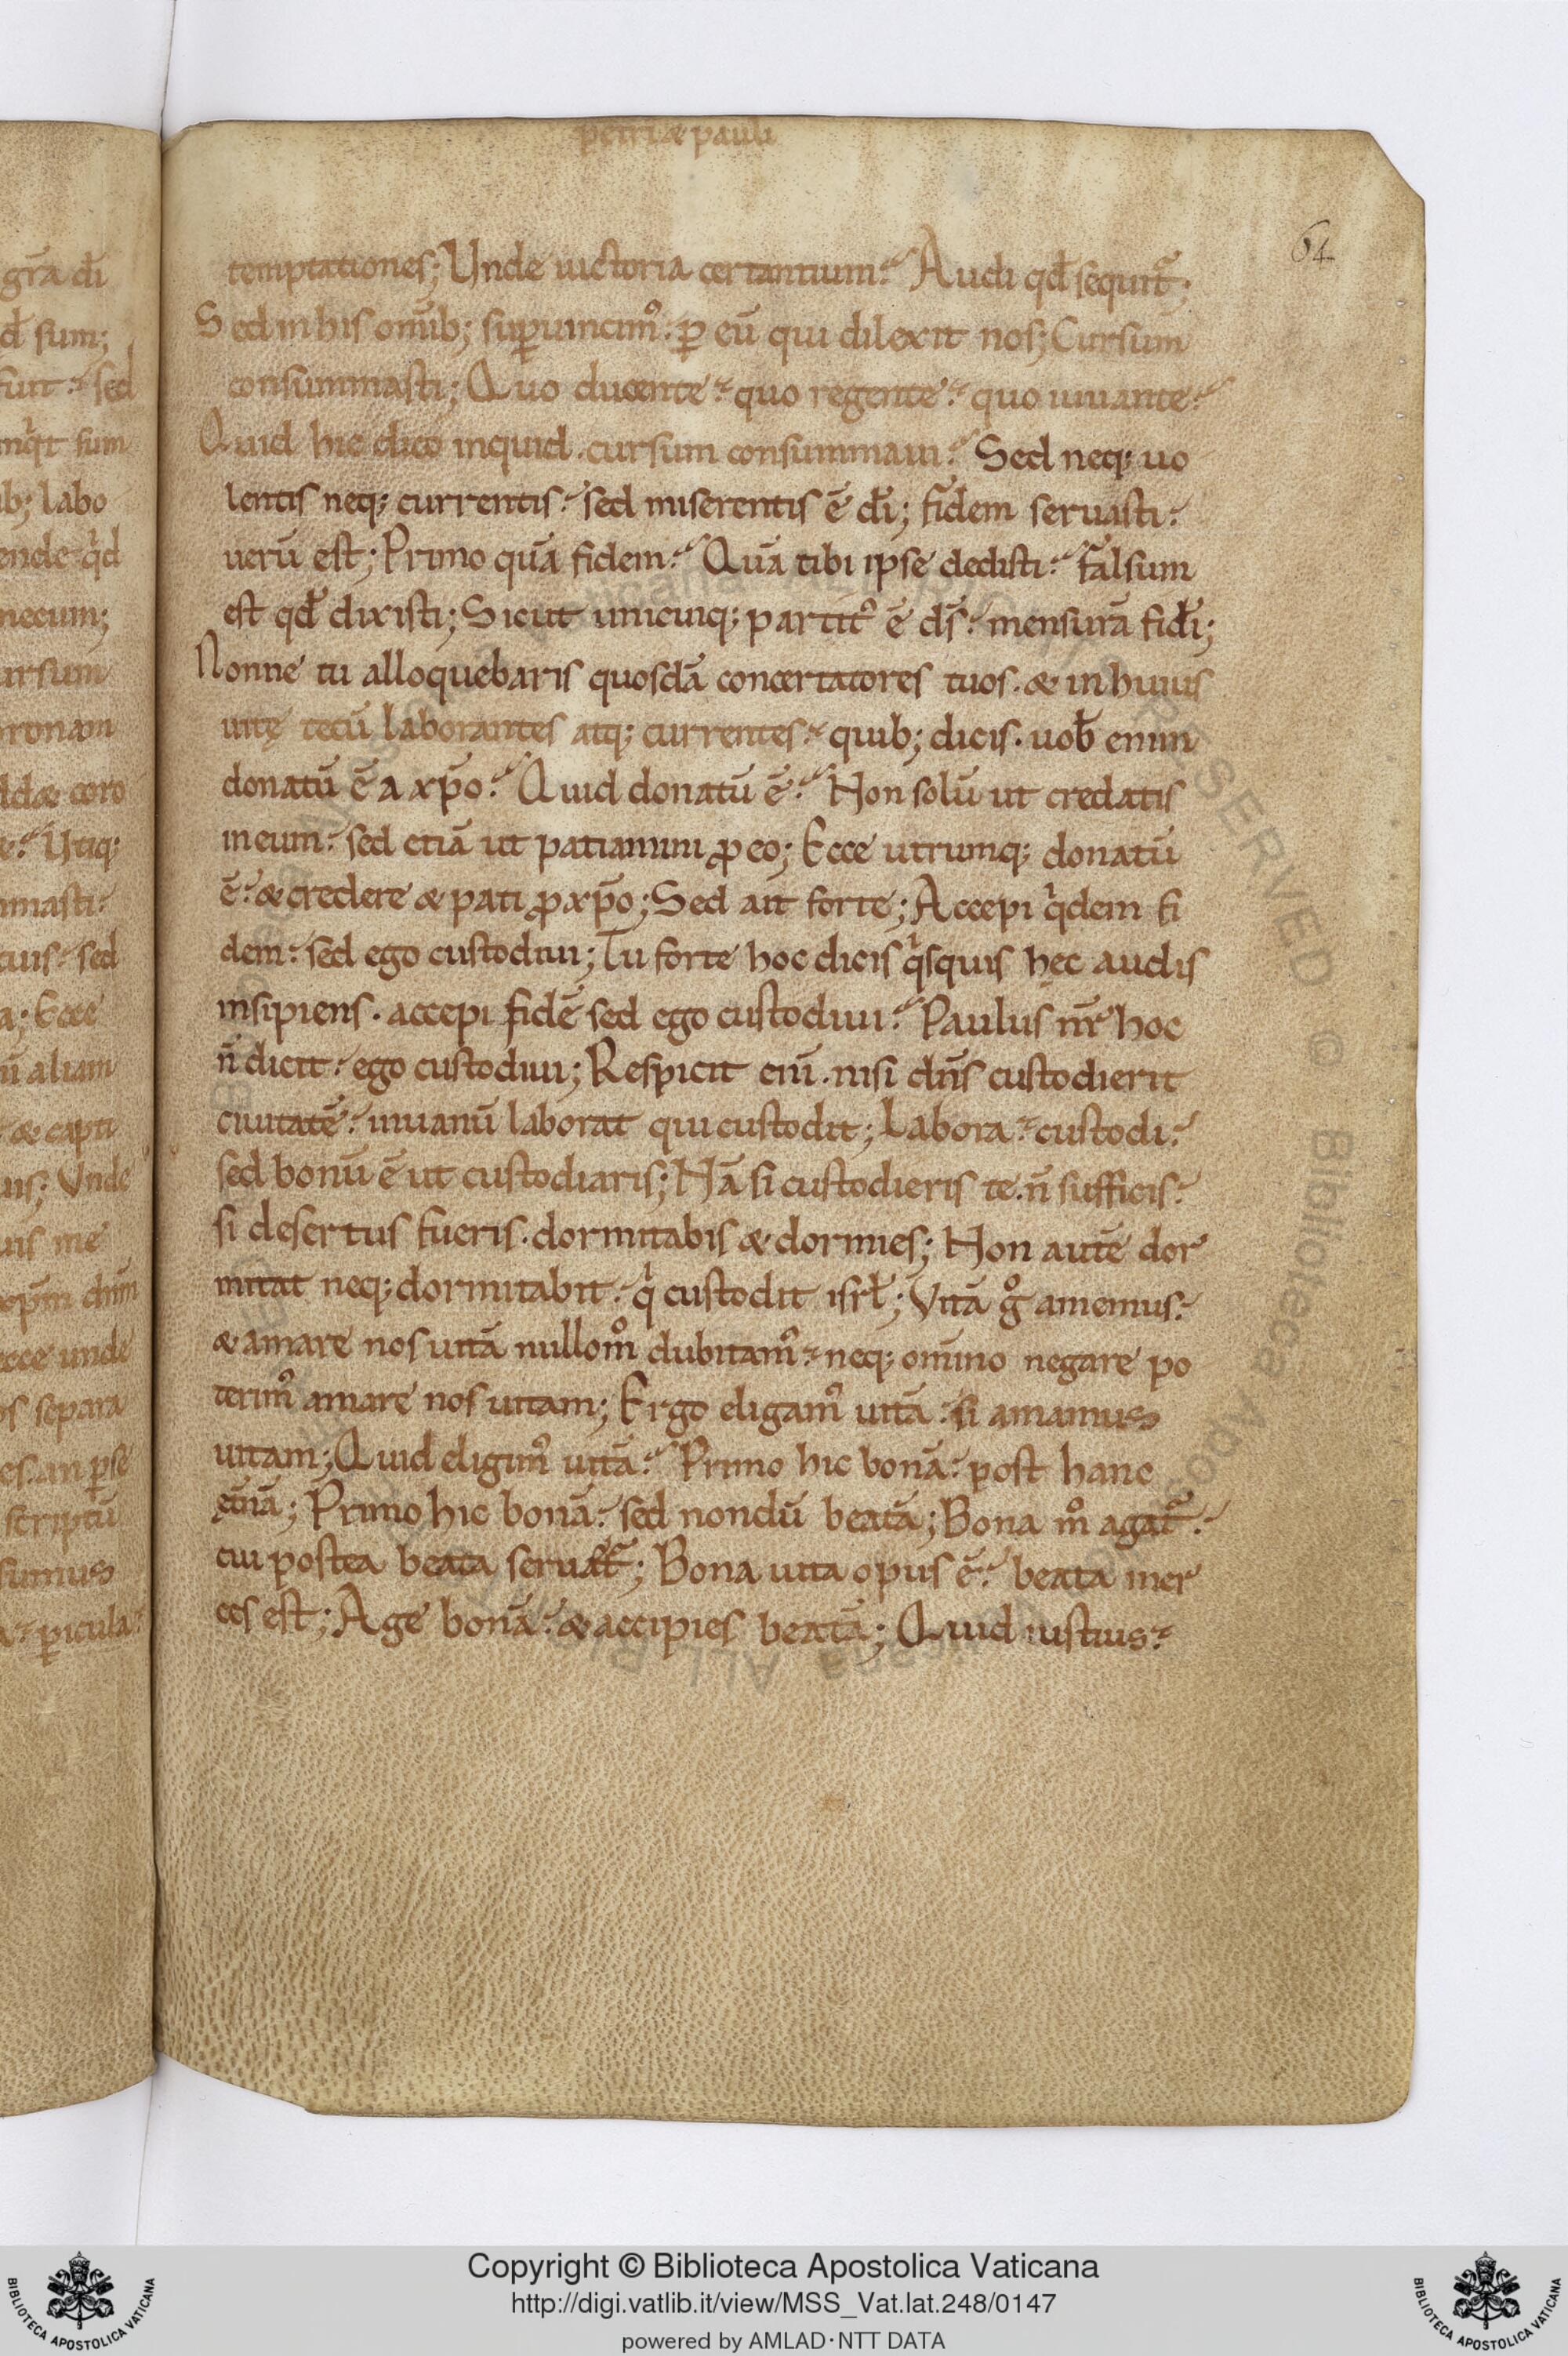 petri & pauli
64
temptationes; Unde uictoria certantium? Audi qd̄ sequit̄;
Sed in his om̄ib; sup̱uincim᷒. p̱ eū qui dilexit nos; Cursum
consummasti; Quo ducente? quo regente? quo iuuante?
Quid hic dico inquid. cursum consummaui? Sed neq; uo
lentis neq; currentis? sed miserentis ē dī; fidem seruasti?
uerū est; Primo quā fidem? Quā tibi ipse dedisti? falsum
est qd̄ dixisti; Sicut unicuiq; partit᷒ ē ds̄? mensurā fidēi;
Nonne tu alloquebaris quosdā concertatores tuos. & in huius
uitę tecū laborantes atq; currentes? quib; dicis. uob̄ enim
donatū ē a xp̄o? Quid donatū ē? Non solū ut credatis
in eum? sed etiā ut patiamini ꝓ eo; Ecce utrumq; donatū
ē? & credere & pati ꝓ xp̄o; Sed ait forte; Accepi qͥdem fi
dem? sed ego custodiui; Tu forte hoc dicis qͥsquis hęc audis
insipiens. accepi fidē sed ego custodiui? Paulus nr̄ hoc
n̄ dicit? ego custodiui; Respicit eni̅. nisi dn̄s custodierit
ciuitatē? in uanū laborat qui custodit; Labora? custodi?
sed bonū ē ut custodiaris; Nā si custodieris te. n̄ sufficis?
si desertus fueris. dormitabis & dormies; Non autē dor
mitat neq; dormitabit? qͥ custodit isrł; Vitā gͦ amemus?
& amare nos uitā nullomͦ dubitam᷒? neq; omīno negare po
terim᷒ amare nos uitam; Ergo eligam᷒ uitā? si amamus
uitam; Quid eligim᷒ uitā? Primo hic bonā? post hanc
ęt̄nā; Primo hic bonā? sed nondū beatā; Bona mͦ agat̄?
cui postea beata seruat̄; Bona uita opus ē? beata mer
ces est; Age bonā? & accipies beatā; Quid iustius?
grā dī
d̄ sum;
sed
sum
b; labo
mecum;
ursum
coro
Utiq;
masti?
sed
Ecce
ū aliam
& capti
Unde
uis me
ecce unde
os separa
scriptū
sumus
p̱icula?
Copyright © Biblioteca Apostolica Vaticana
http://digi.vatlib.it/view/MSS_Vat.lat.248/0147
powered by AMLAD·NTT DATA
BIBLIOTECA APOSTOLICA VATICANA
BIBLIOTECA APOSTOLICA VATICANA